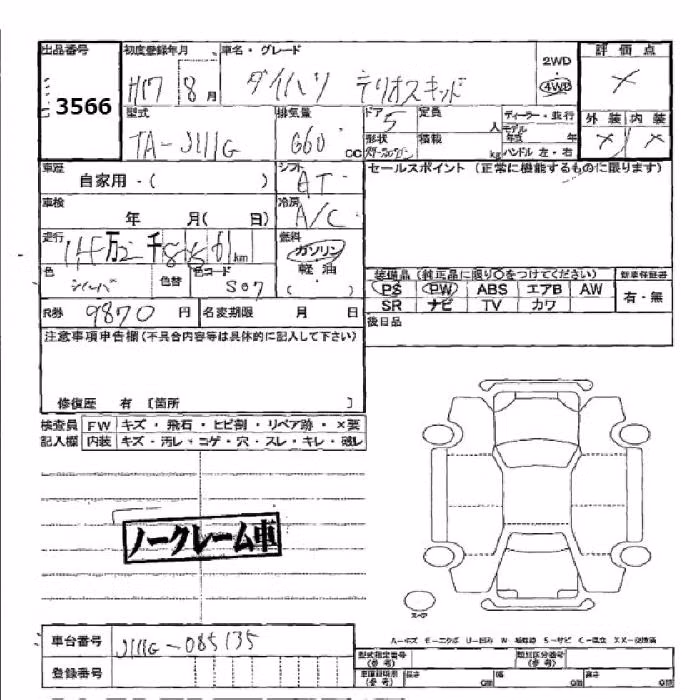 出品番号 初度登録年月 車名・グレード 評価点
3566 H17 8月 ダイハツ テリオスキッド 2WD 4WD ×
型式 排気量 ドア 定員 ディーラー・並行 外装 内装
TA-J111G 660 cc 5 人 モデル年式 年 × ×
形状 積載 kg ハンドル 左・右
車歴 自家用・( ) シフト AT セールスポイント (正常に機能するものに限ります)
車検 年 月( 日) 冷房 A/C
走行 万 千 km 燃料 ガソリン 軽油 ( )
色 シルバ 色替 色コード S07
装備品 (純正品に限り○をつけてください) 新車保証書
PS PW ABS エアB AW 有・無
SR ナビ TV カワ
R券 9870 円 名変期限 月 日
後日品
注意事項申告欄(不具合内容等は具体的に記入して下さい)
修復歴 有 〔箇所 〕
検査員 FW キズ・飛石・ヒビ割・リペア跡・×要
記入欄 内装 キズ・汚レ・コゲ・穴・スレ・キレ・破レ
ノークレーム車
スペア
車台番号 J111G-085135
型式指定番号 (参考) 類別区分番号 (参考)
登録番号
(参考) 長さ cm 幅 cm 高さ cm